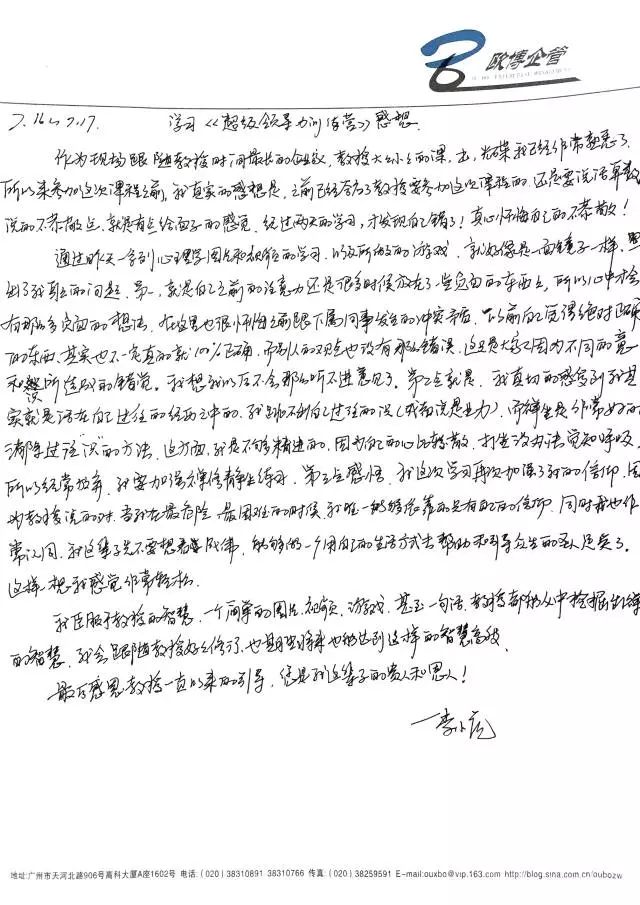 欧博企管
7.16～7.17. 学习《超级领导力训练营》感想.
作为现场跟随教授时间最长的企业, 教授大大小小的课, 光碟我已经非常熟悉了.
所以来参加这次课程之前, 我真实的感想是, 之前已经答应了教授要参加这次课程的, 还是要说话算数,
说的不恭敬点, 就是有点给面子的感觉, 经过两天的学习, 才发现自己错了! 真心忏悔自己的不恭敬!
通过昨天一系列心理学图片和视频的学习, 以及所做的游戏, 就好像是一面镜子一样, 照
出了我真正的问题. 第一, 就是自己之前的注意力还是很多时候放在了一些负面的东西上, 所以心中才会
有那么多负面的想法. 在这里也很忏悔之前跟下属同事发生的冲突矛盾. 以前自己觉得绝对正确
的东西, 其实也不一定真的就100%正确, 而别人的观点也没有那么错误, 这只是大家因为不同的意
识所造成的错觉. 我想我以后不会那么听不进意见了. 第二点就是, 我真切的感受到我其
实就是活在自己过往的经历之中的, 我跳不出自己过往的识(或者说是业力), 而禅坐是非常好的
清除过往"识"的方法, 这方面, 我是不够精进的, 因为自己的心比较散, 打坐没办法觉知呼吸,
所以经常放弃, 我要加强禅修静坐练习. 第三点感悟, 我这次学习再次加深了我的信仰, 因
为教授说的对, 当我在最危险, 最困难的时候, 我唯一能够依靠的只有自己的信仰, 同时我也非
常认同, 我这辈子先不要想着成佛, 能够做一个用自己的生活方式去帮助和引导众生的圣人足矣了.
这样一想我感觉非常轻松.
我臣服于教授的智慧, 一个简单的图片, 视频, 游戏, 甚至一句话, 教授都能从中挖掘出
的智慧, 我会跟随教授好好修行, 也期望将来也能达到这样的智慧高级.
最后感恩教授一直以来的引导, 您是我这辈子的贵人和恩人!
地址:广州市天河北路906号高科大厦A座1602号 电话:(020)38310891 38310766 传真:(020)38259591 E-mail:ouxbo@vip.163.com http://blog.sina.com.cn/oubozw